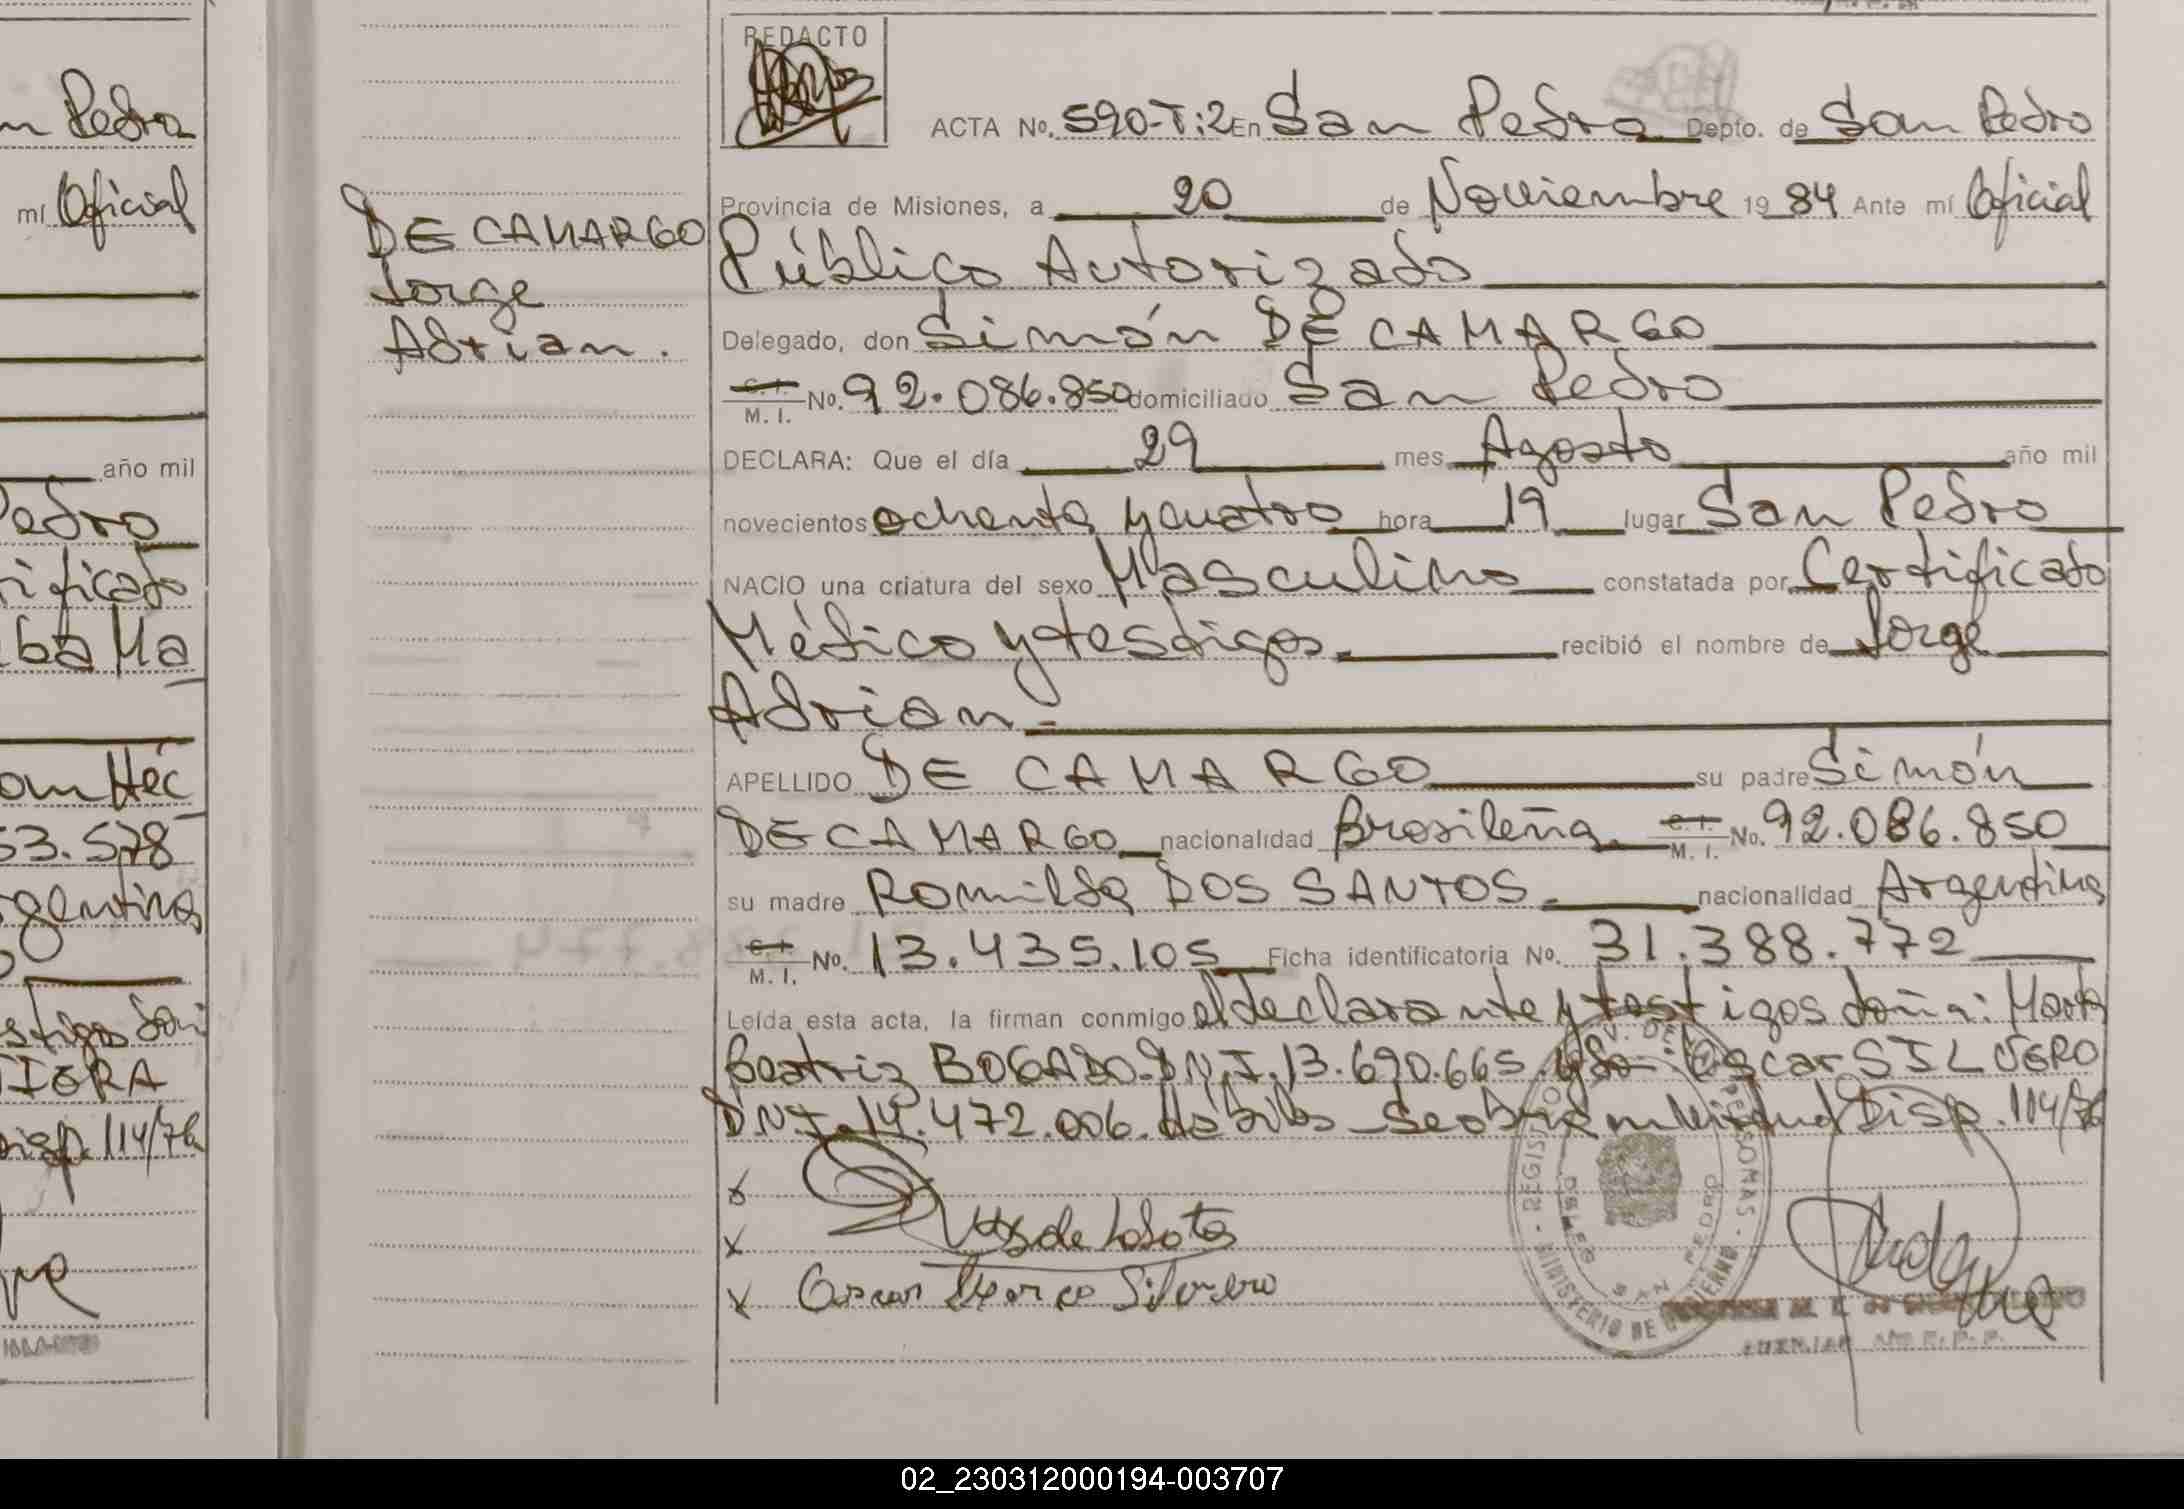 n Pedro
mí Oficial
año mil
Pedro
rificato
ba Ma
om Héc
53.578
rgentina
stigos don
IERA
Disp. 114/76
DE CAMARGO
Jorge
Adrian.
REDACTO
ACTA No. 590-T:2 En San Pedro Depto. de San Pedro
Provincia de Misiones, a 20 de Noviembre 19 84 Ante mí Oficial
Público Autorizado
Delegado, don Simón DE CAMARGO
C. I. M. I. No. 92.086.850 domiciliado San Pedro
DECLARA: Que el día 29 mes Agosto año mil
novecientos ochenta y cuatro hora 19 lugar San Pedro
NACIO una criatura del sexo Masculino constatada por Certificado
Médico y testigos. recibió el nombre de Jorge
Adrian.=
APELLIDO DE CAMARGO su padre Simón
DE CAMARGO nacionalidad Brasileña C. I. M. I. No. 92.086.850
su madre Romilda DOS SANTOS. nacionalidad Argentina
C. I. M. I. No. 13.435.105 Ficha identificatoria No. 31.388.772
Leída esta acta, la firman conmigo el declarante y testigos doña: Marta
Beatriz BOGADO-DNI.13.690.665. y don Oscar SILVERO
DNI.14.472.006. Hábiles-Se obra en virtud Disp. 114/76
x
x
x Oscar Silvero
REGISTRO PROV. DE LAS PERSONAS
MINISTERIO DE GOBIERNO
SAN PEDRO
02_230312000194-003707